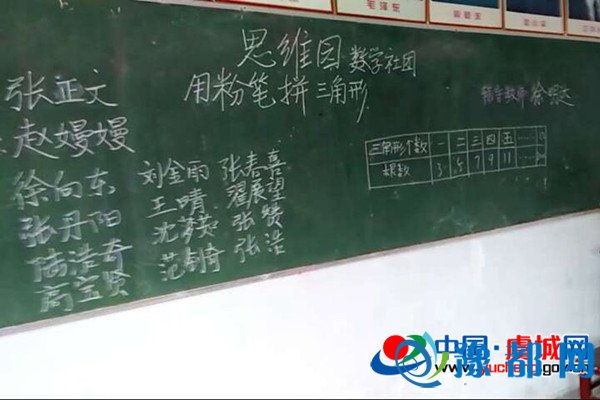 毛泽东
思维图 数学社团
用粉笔拼三角形
张正文
赵嫚嫚
徐向东 刘金雨 张春喜
张丹阳 王晴 翟展望
陆浩奇 沈梦英 张
高宝贤 范制奇 张浩
辅导教师 徐
三角形个数 一 二 三 四 五 ……
根数 3 5 7 9 11 ……
中国·虞城网
www.yucheng.gov.cn
豫都网